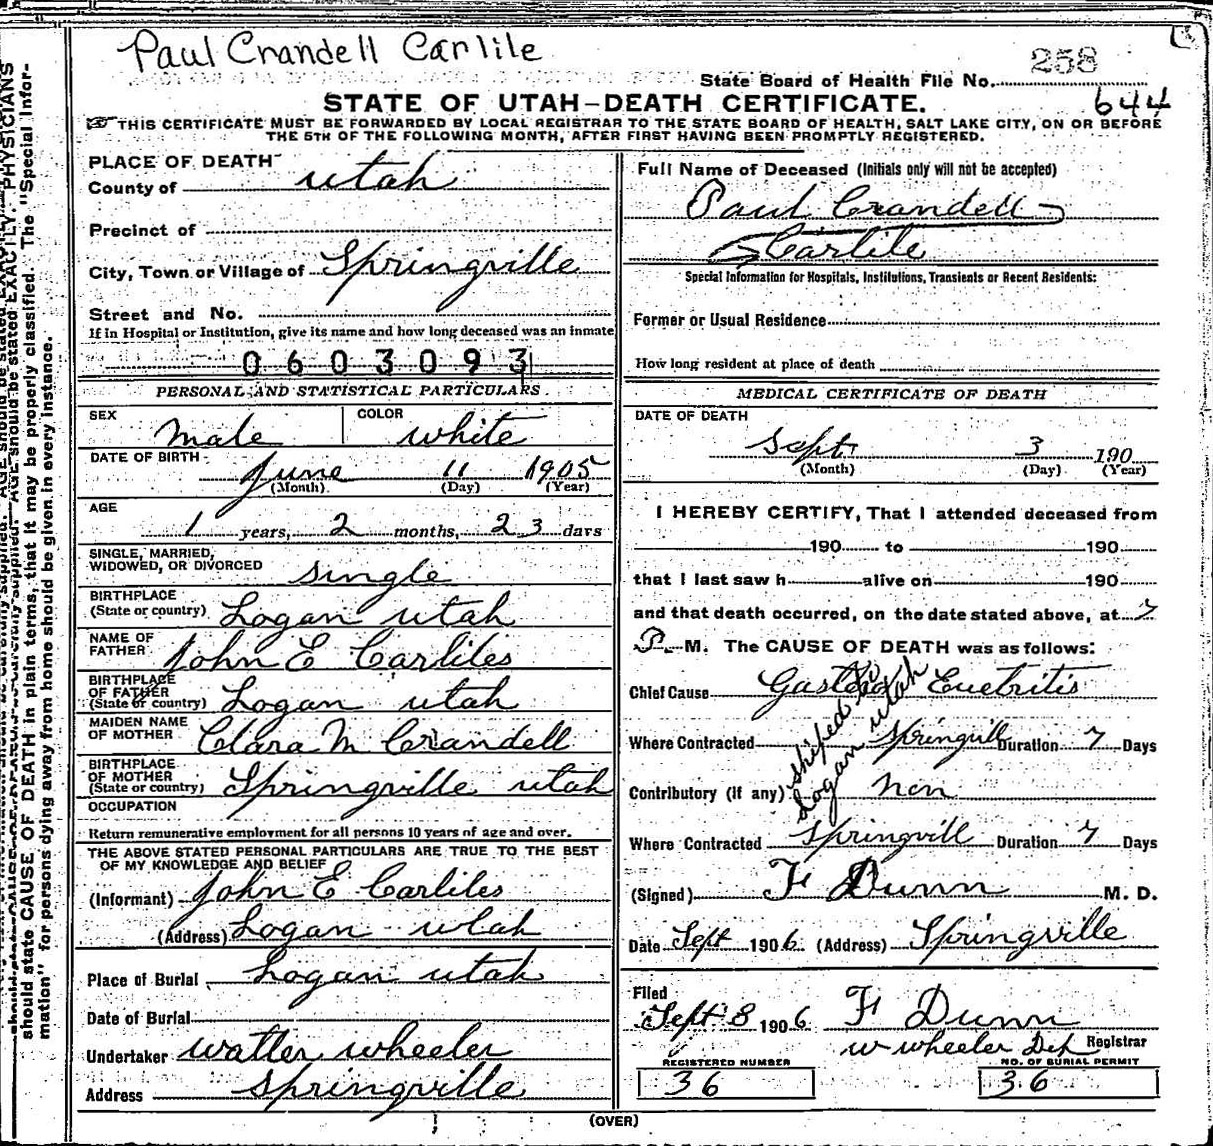 Paul Crandell Carlile
258
State Board of Health File No.
644
STATE OF UTAH—DEATH CERTIFICATE.
THIS CERTIFICATE MUST BE FORWARDED BY LOCAL REGISTRAR TO THE STATE BOARD OF HEALTH, SALT LAKE CITY, ON OR BEFORE
THE 5TH OF THE FOLLOWING MONTH, AFTER FIRST HAVING BEEN PROMPTLY REGISTERED.
PLACE OF DEATH
County of Utah
Precinct of
City, Town or Village of Springville
Street and No.
If in Hospital or Institution, give its name and how long deceased was an inmate
0603093
PERSONAL AND STATISTICAL PARTICULARS
SEX Male COLOR white
DATE OF BIRTH June 11 1905
(Month) (Day) (Year)
AGE
1 years, 2 months, 23 days
SINGLE, MARRIED,
WIDOWED, OR DIVORCED single
BIRTHPLACE
(State or country) Logan Utah
NAME OF
FATHER John E Carliles
BIRTHPLACE
OF FATHER
(State or country) Logan Utah
MAIDEN NAME
OF MOTHER Clara M Crandell
BIRTHPLACE
OF MOTHER
(State or country) Springville Utah
OCCUPATION
Return remunerative employment for all persons 10 years of age and over.
THE ABOVE STATED PERSONAL PARTICULARS ARE TRUE TO THE BEST
OF MY KNOWLEDGE AND BELIEF
(Informant) John E Carliles
(Address) Logan Utah
Place of Burial Logan Utah
Date of Burial
Undertaker Walter Wheeler
Address Springville
Full Name of Deceased (Initials only will not be accepted)
Paul Crandell
Carlile
Special Information for Hospitals, Institutions, Transients or Recent Residents:
Former or Usual Residence
How long resident at place of death
MEDICAL CERTIFICATE OF DEATH
DATE OF DEATH
Sept 3 190
(Month) (Day) (Year)
I HEREBY CERTIFY, That I attended deceased from
190 to 190
that I last saw h alive on 190
and that death occurred, on the date stated above, at 7
P. M. The CAUSE OF DEATH was as follows:
Chief Cause Gastro Euetritis
Where Contracted Springvill Duration 7 Days
Contributory (if any) Non
shiped to
Logan Utah
Where Contracted Springvill Duration 7 Days
(Signed) F Dunn M. D.
Date Sept 1906 (Address) Springville
Filed
Sept 8 1906 F Dunn
W Wheeler Dep Registrar
REGISTERED NUMBER
36
NO. OF BURIAL PERMIT
36
(OVER)
PHYSICIANS
should state CAUSE OF DEATH in plain terms, that it may be properly classified. The "Special Infor-
mation" for persons dying away from home should be given in every instance.